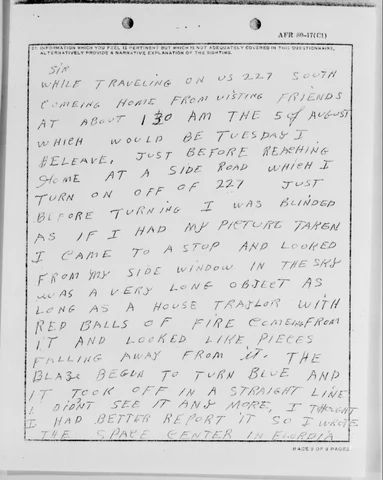 AFR 80-17(C1)
21. INFORMATION WHICH YOU FEEL IS PERTINENT BUT WHICH IS NOT ADEQUATELY COVERED IN THIS QUESTIONNAIRE.
ALTERNATIVELY PROVIDE A NARRATIVE EXPLANATION OF THE SIGHTING.
SIR
WHILE TRAVELING ON US 227 SOUTH
COMEING HOME FROM VISTING FRIENDS
AT ABOUT 130 AM THE 5 of AUGUST
WHICH WOULD BE TUESDAY I
BELEAVE, JUST BEFORE REACHING
HOME AT A SIDE ROAD WHICH I
TURN ON OFF OF 227 JUST
BEFORE TURNING I WAS BLINDED
AS IF I HAD MY PICTURE TAKEN
I CAME TO A STOP AND LOOKED
FROM MY SIDE WINDOW IN THE SKY
WAS A VERY LONG OBJECT AS
LONG AS A HOUSE TRAILOR WITH
RED BALLS OF FIRE COMEING FROM
IT AND LOOKED LIKE PIECES
FALLING AWAY FROM it. THE
BLAZE BEGUN TO TURN BLUE AND
IT TOOK OFF IN A STRAIGHT LINE
I DIDNT SEE IT ANY MORE, I THOUGHT
I HAD BETTER REPORT IT SO I WROTE
THE SPACE CENTER IN FLORDIA
PAGE 5 OF 5 PAGES